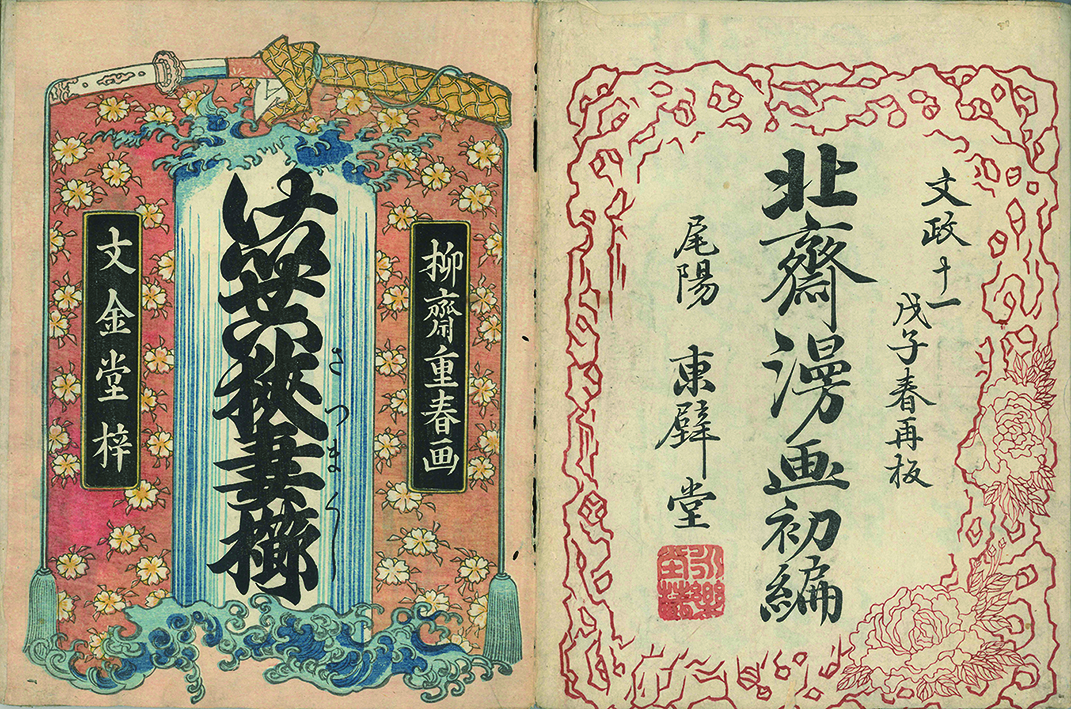 文政十一
戊子春再板
北齋漫画初編
尾陽 東壁堂
柳齋重春画
さつまくし
狹妻櫛
文金堂梓